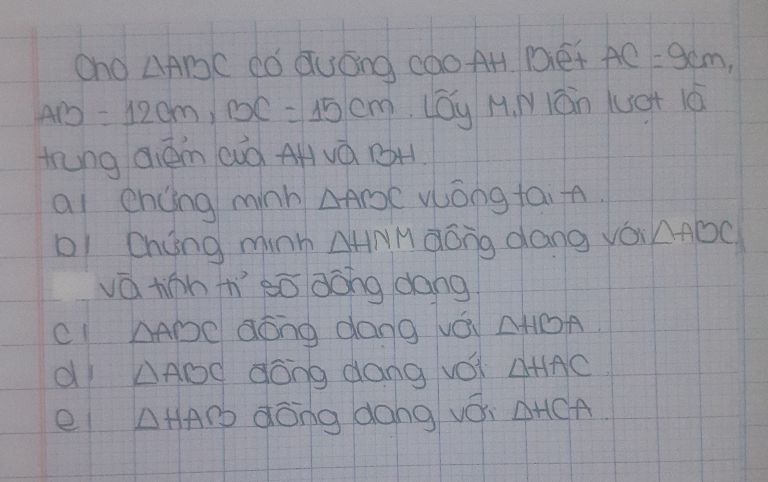 Cho ΔABC có đường cao AH. Biết AC = 9cm,
AB = 12cm, BC = 15cm. Lấy M,N lần lượt là
trung điểm của AH và BH.
a) Chứng minh ΔABC vuông tại A.
b) Chứng minh ΔHNM đồng dạng với ΔABC
và tính tỉ số đồng dạng.
c) ΔABC đồng dạng với ΔHBA.
d) ΔABC đồng dạng với ΔHAC.
e) ΔHAB đồng dạng với ΔHCA.